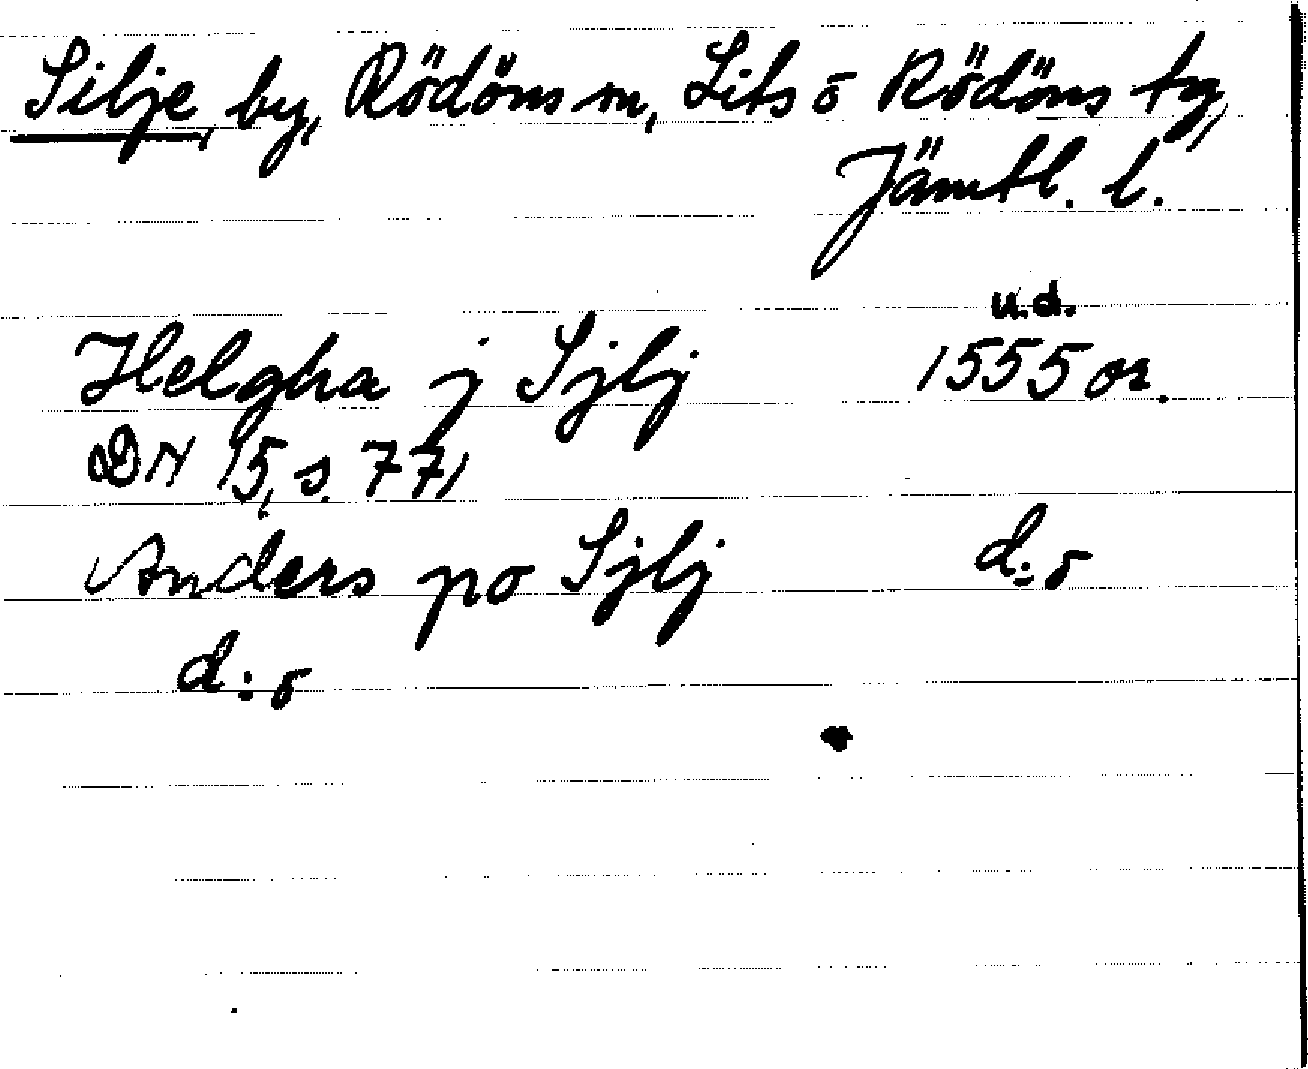 Silje, by, Rödöns sn, Lits o Rödöns tg,
Jämtl. l.
u.d.
Helgha j Sjlj 1555 or.
DN 15, s. 77,
Anders po Sjlj d:o
d:o